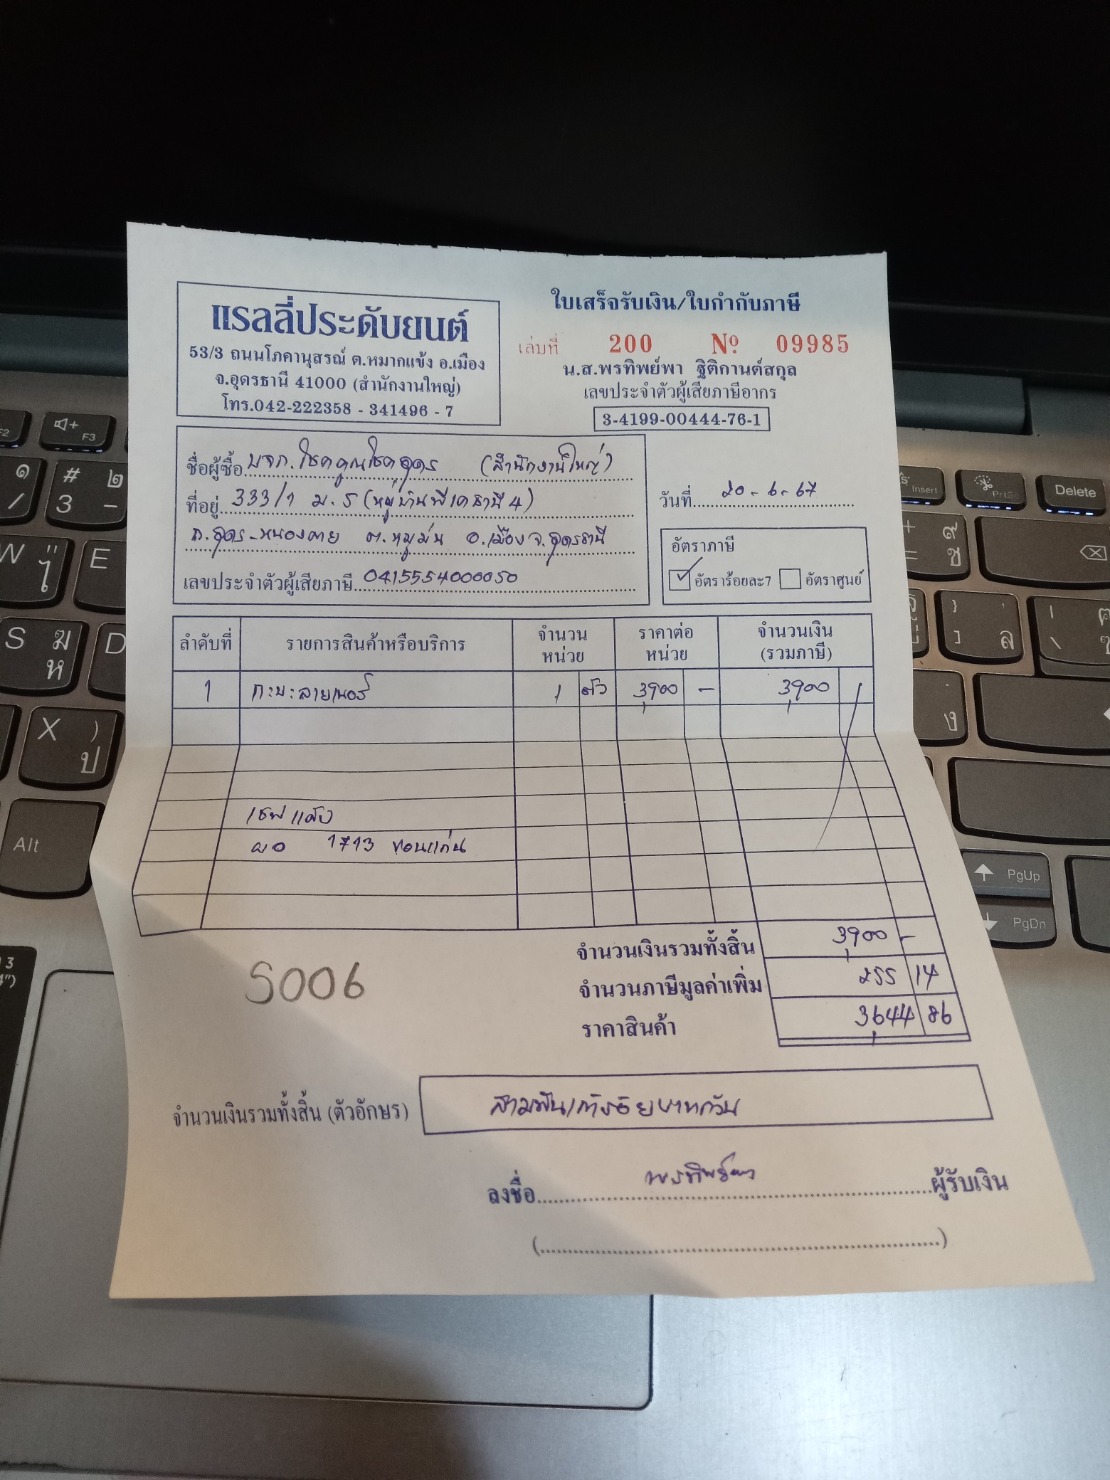 ใบเสร็จรับเงิน/ใบกำกับภาษี
แรลลี่ประดับยนต์
53/3 ถนนโภคานุสรณ์ ต.หมากแข้ง อ.เมือง
จ.อุดรธานี 41000 (สำนักงานใหญ่)
โทร.042-222358 - 341496 - 7
เล่มที่ 200 Nº 09985
น.ส.พรทิพย์พา ฐิติกานต์สกุล
เลขประจำตัวผู้เสียภาษีอากร
3-4199-00444-76-1
ชื่อผู้ซื้อ บจก.โชคคูณโชคอุดร (สำนักงานใหญ่)
ที่อยู่ 333/1 ม.5 (หมู่บ้านพีเคธานี 4)
ถ.อุดร-หนองคาย ต.หมูม่น อ.เมือง จ.อุดรธานี
เลขประจำตัวผู้เสียภาษี 0415554000050
วันที่ 20-6-67
อัตราภาษี
อัตราร้อยละ7 อัตราศูนย์
ลำดับที่ รายการสินค้าหรือบริการ จำนวนหน่วย ราคาต่อหน่วย จำนวนเงิน (รวมภาษี)
1 กะบะลายเนอร์ 1 ตัว 3,900 - 3,900
เชฟ
1713 ขอนแก่น
จำนวนเงินรวมทั้งสิ้น 3,900 -
จำนวนภาษีมูลค่าเพิ่ม 255 14
ราคาสินค้า 3,644 86
S006
จำนวนเงินรวมทั้งสิ้น (ตัวอักษร) สามพันเก้าร้อยบาทถ้วน
ลงชื่อ พรทิพย์พา ผู้รับเงิน
Insert
Delete
PgUp
PgDn
Alt
F3